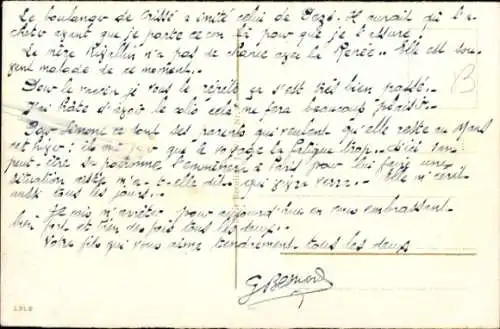 Le boulanger de Crissé a imité celui de Ouzé. Il aurait dû l'a-
cheter avant que je parte de con pour que je l'essaie.
La mère n'a pas de chance avec la Renée. Elle est sou-
vent malade de ce moment.
Pour le vaccin je vous le répète ça s'est très bien passé.
J'ai hâte d'avoir le colis cela me fera beaucoup plaisir.
Pour Simone ce sont des parents qui veulent qu'elle reste au Mans
cet hiver ; ils ont que le voyage la fatigue trop. d'ici
peut-être sa patronne l'emmènera à Paris pour lui faire une
situation mais m'a-t-elle dit qui vivra verra. Elle m'écrit
aussi tous les jours.
Je vais m'arrêter pour aujourd'hui en vous embrassant
bien fort et bien des fois tous les deux.
Votre fils qui vous aime tendrement tous les deux